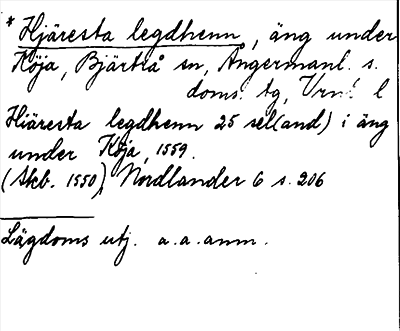 * Hjäresta legdhenn, äng under
Köja, Bjärtrå sn, Ångermanl. s.
doms. tg, l
Hiäresta legdhenn 25 sel(and) i äng
under Köja, 1559.
(Skb. 1550) Nordlander 6 s. 206
Lägdoms utj. a.a. anm.